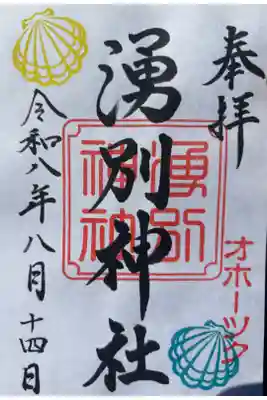 奉拝
オホーツク
湧別神社
湧別
神社
令和八年八月十四日